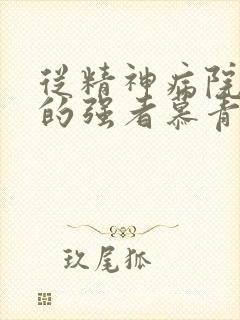 從精神病院
的强者慕青
玖尾狐